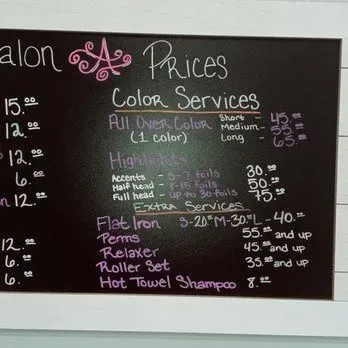 alon A Prices
15.00
12.00
12.00
6.00
n 12.00
12.00
6.00
6.00
Color Services
All Over Color
(1 color)
Short - 45.00
Medium - 55.00
Long - 65.00
Highlights
Accents - 5-7 foils 30.00
Half head - 8-15 foils 50.00
Full head - up to 30 foils 75.00
Extra Services
Flat Iron S-20.00 M-30.00 L - 40.00
Perms 55.00 and up
Relaxer 45.00 and up
Roller Set 35.00 and up
Hot Towel Shampoo 8.00